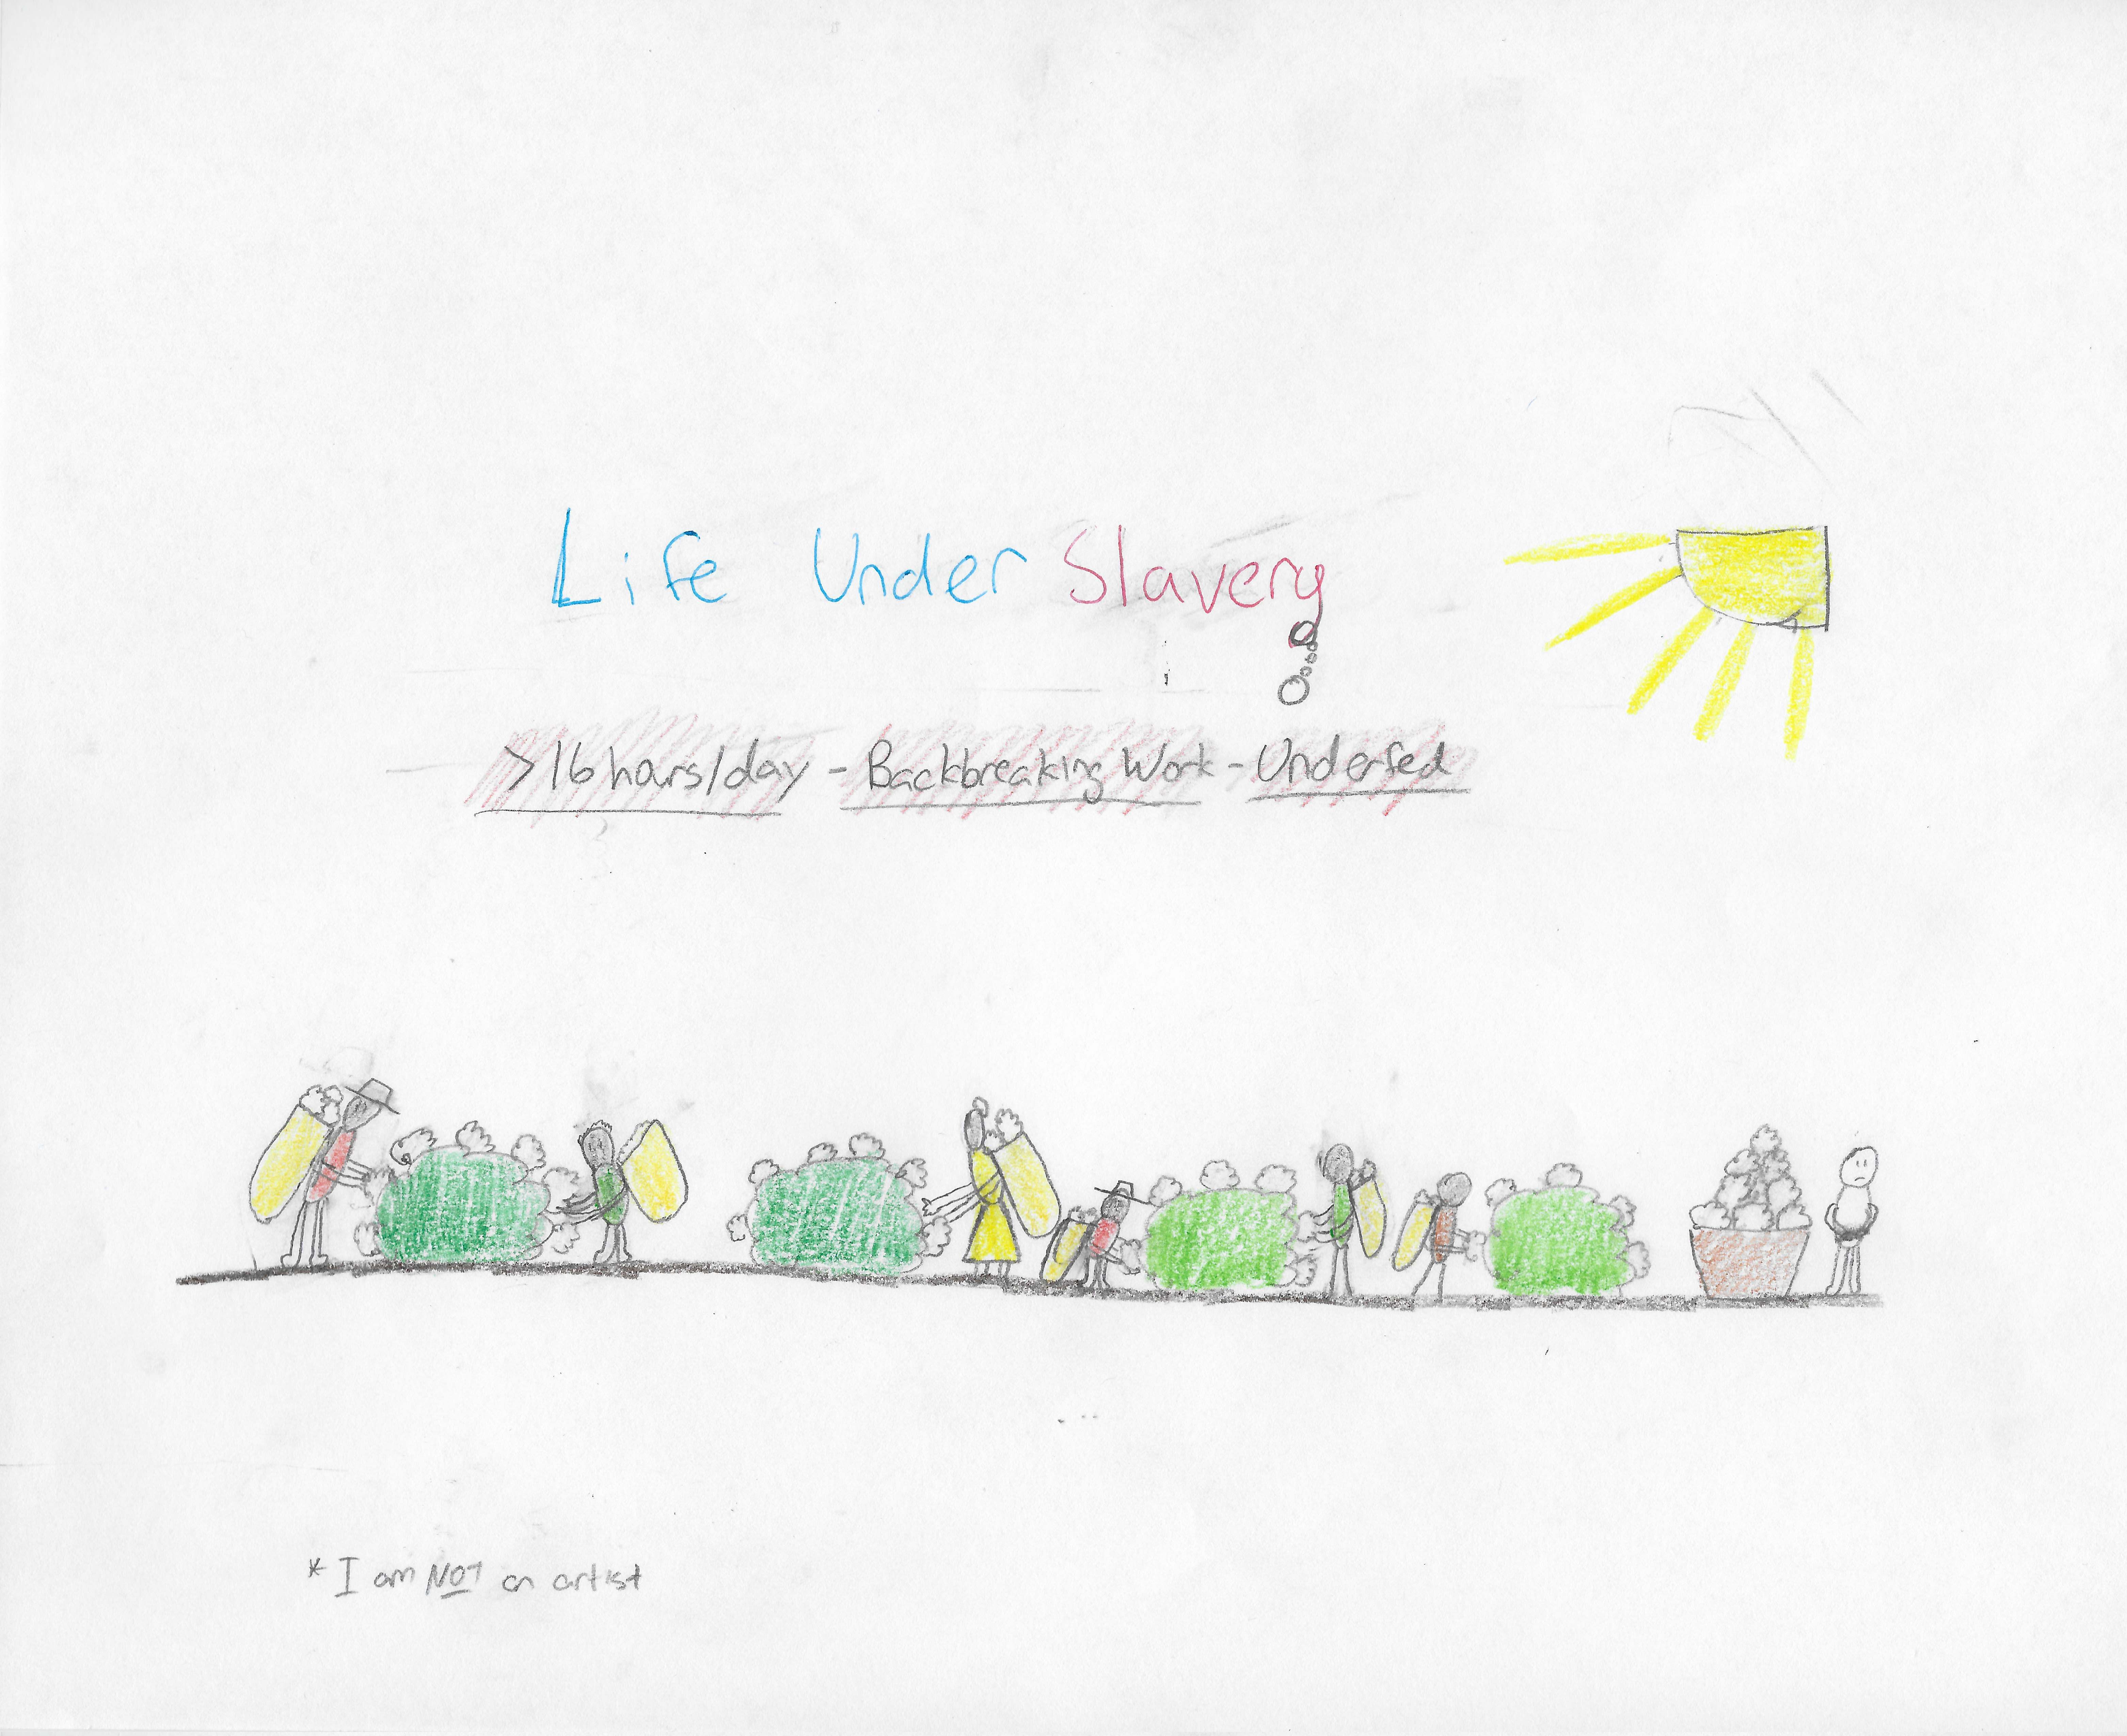 Life Under Slavery
>16 hours/day - Backbreaking Work - Underfed
* I am NOT an artist